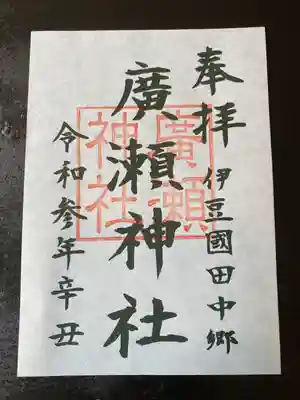 奉拝
伊豆國田中郷
廣瀬神社
廣瀬
神社
令和参年辛丑